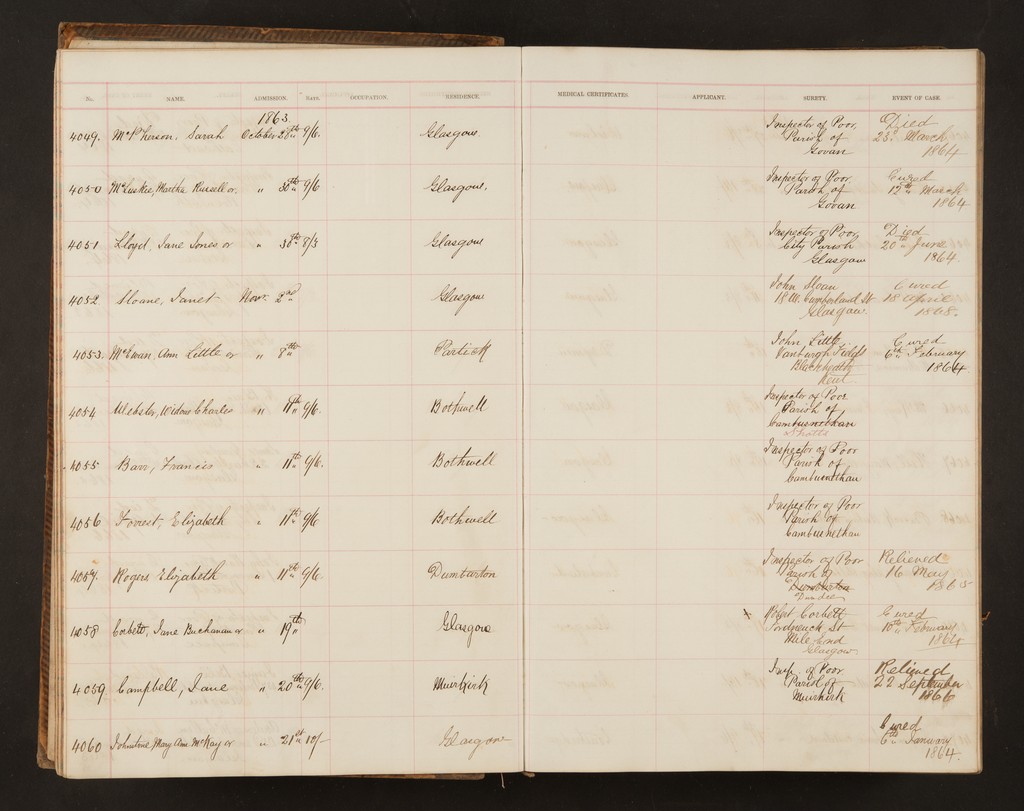 No. NAME. ADMISSION. RATE. OCCUPATION. RESIDENCE. MEDICAL CERTIFICATES. APPLICANT. SURETY. EVENT OF CASE.
1863.
4049. McPherson, Sarah October 28th 9/6. Glasgow. Inspector of Poor, Died
Parish of 23d March
Govan 1864
4050 McLuskie, Martha Russell or " 30th 9/6 Glasgow. Inspector of Poor Cured
Parish of 12th March
Govan 1864
4051 Lloyd, Jane Jones or " 30th 8/3 Glasgow Inspector of Poor, Died
City Parish 20th June
Glasgow 1864
4052 Sloane, Janet Novr. 2nd Glasgow John Sloan Cured
18 W. Cumberland St 18 April
Glasgow. 1868.
4053. McEwan, Ann Little or " 8th Partick John Little Cured
Vanburgh Fields 6th February
Blackheath 1864
Kent
4054 Webster, Widow Charles " 11th 9/6. Bothwell Inspector of Poor
Parish of
Cambusnethan
Shotts
4055 Barr, Francis " 11th 9/6. Bothwell Inspector of Poor
Parish of
Cambusnethan
4056 Forrest, Elizabeth " 11th 9/6 Bothwell Inspector of Poor
Parish of
Cambusnethan
4057. Rogers Elizabeth " 11th 9/6. Dumbarton Inspector of Poor Relieved
Parish of 16 May
Dumbarton 1865
Dundee
4058 Corbett, Jane Buchanan or " 19th Glasgow × Robert Corbett Cured
St 10th February
Mile End 1864
Glasgow.
4059 Campbell, Jane " 20th 9/6. Muirkirk Insp. of Poor Relieved
Parish of 22 September
Muirkirk 1866
4060 Johnstone, Mary Ann McKay or " 21st 10/- Glasgow Cured
6th January
1864.